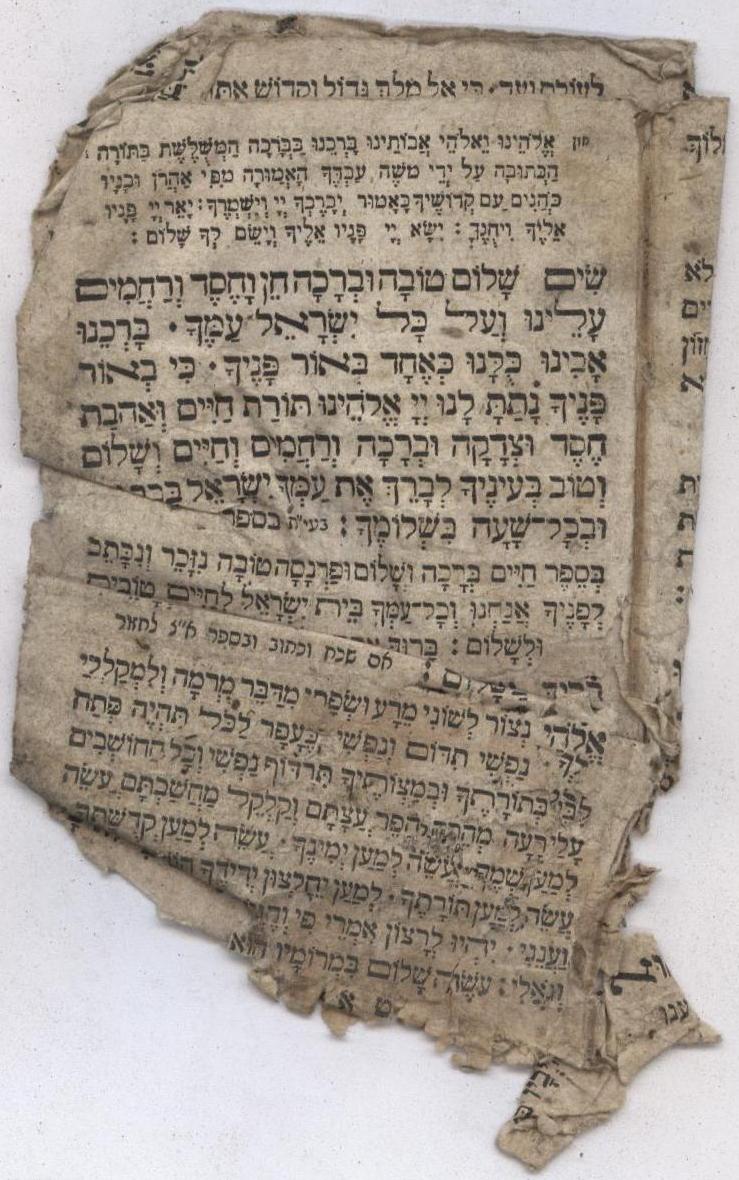 כי אל מלך גדול וקדוש את
לוֹךְ
חזן אֱלֹהֵינוּ וֵאלֹהֵי אֲבוֹתֵינוּ בָּרְכֵנוּ בַּבְּרָכָה הַמְּשֻׁלֶּשֶׁת בַּתּוֹרָה
הַכְּתוּבָה עַל יְדֵי מֹשֶׁה עַבְדֶּךָ הָאֲמוּרָה מִפִּי אַהֲרֹן וּבָנָיו
כֹּהֲנִים עַם קְדוֹשֶׁיךָ כָּאָמוּר יְבָרֶכְךָ יְיָ וְיִשְׁמְרֶךָ: יָאֵר יְיָ פָּנָיו
אֵלֶיךָ וִיחֻנֶּךָּ: יִשָּׂא יְיָ פָּנָיו אֵלֶיךָ וְיָשֵׂם לְךָ שָׁלוֹם:
שִׂים שָׁלוֹם טוֹבָה וּבְרָכָה חֵן וָחֶסֶד וְרַחֲמִים
עָלֵינוּ וְעַל כָּל יִשְׂרָאֵל עַמֶּךָ. בָּרְכֵנוּ
אָבִינוּ כֻּלָּנוּ כְּאֶחָד בְּאוֹר פָּנֶיךָ. כִּי בְאוֹר
פָּנֶיךָ נָתַתָּ לָנוּ יְיָ אֱלֹהֵינוּ תּוֹרַת חַיִּים וְאַהֲבַת
חֶסֶד וּצְדָקָה וּבְרָכָה וְרַחֲמִים וְחַיִּים וְשָׁלוֹם
וְטוֹב בְּעֵינֶיךָ לְבָרֵךְ אֶת עַמְּךָ יִשְׂרָאֵל
וּבְכָל־שָׁעָה בִּשְׁלוֹמֶךָ: בעי"ת בספר
בְּסֵפֶר חַיִּים בְּרָכָה וְשָׁלוֹם וּפַרְנָסָה טוֹבָה נִזָּכֵר וְנִכָּתֵב
לְפָנֶיךָ אֲנַחְנוּ וְכָל־עַמְּךָ בֵּית יִשְׂרָאֵל לְחַיִּים טוֹבִים
וּלְשָׁלוֹם: בָּרוּךְ
אם שכח וכתוב ובספר א"צ לחזור
אֱלֹהַי נְצוֹר לְשׁוֹנִי מֵרָע וּשְׂפָתַי מִדַּבֵּר מִרְמָה וְלִמְקַלְלַי
נַפְשִׁי תִדּוֹם וְנַפְשִׁי כֶּעָפָר לַכֹּל תִּהְיֶה פְּתַח
לִבִּי בְּתוֹרָתֶךָ וּבְמִצְוֹתֶיךָ תִּרְדּוֹף נַפְשִׁי וְכָל הַחוֹשְׁבִים
עָלַי רָעָה מְהֵרָה הָפֵר עֲצָתָם וְקַלְקֵל מַחֲשַׁבְתָּם עֲשֵׂה
לְמַעַן שְׁמֶךָ עֲשֵׂה לְמַעַן יְמִינֶךָ. עֲשֵׂה לְמַעַן קְדֻשָּׁתֶךָ
עֲשֵׂה לְמַעַן תּוֹרָתֶךָ. לְמַעַן יֵחָלְצוּן יְדִידֶיךָ
וַעֲנֵנִי. יִהְיוּ לְרָצוֹן אִמְרֵי פִי
וְגֹאֲלִי: עֹשֶׂה שָׁלוֹם בִּמְרוֹמָיו הוּא
ט א